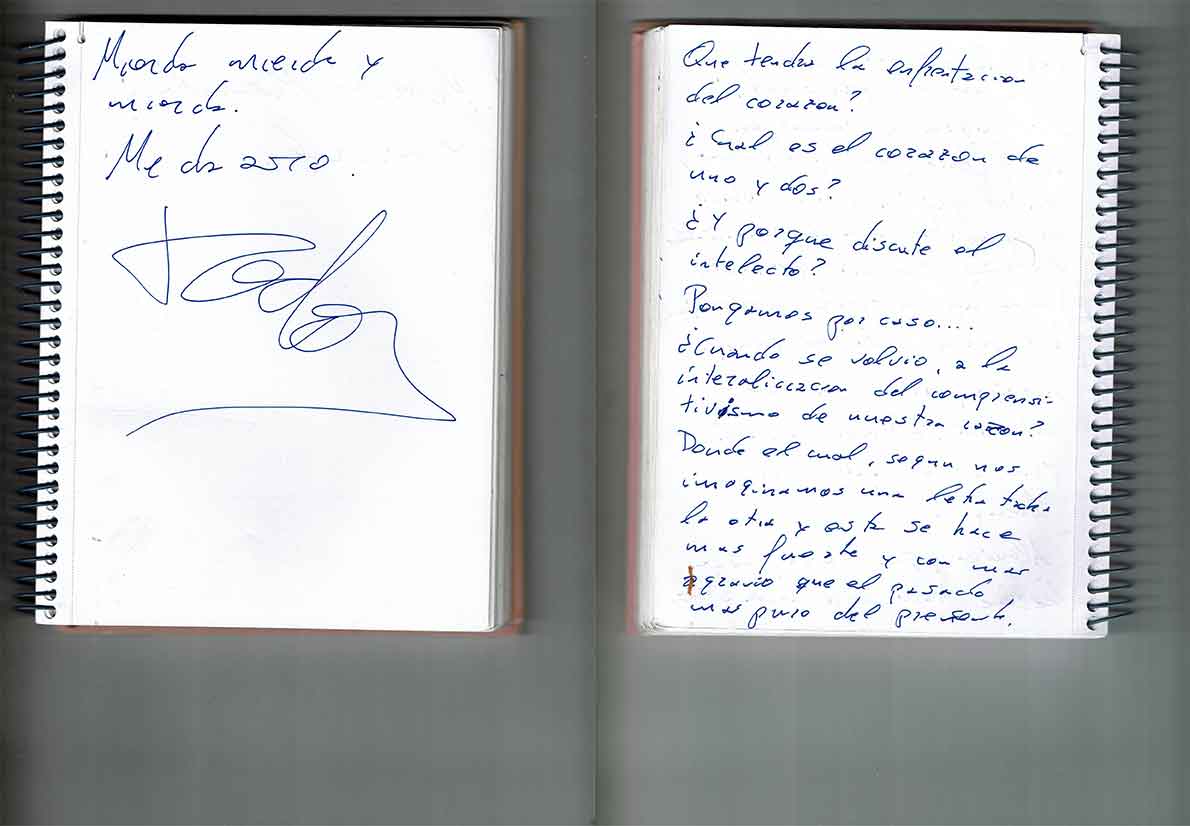 Mierda mierda y
mierda.
Me da asco.
Todo
Que tendra la enfrentacion
del corazon?
¿Cual es el corazon de
uno y dos?
¿Y porque discute el
intelecto?
Pongamos por caso....
¿Cuando se volvio, a la
del comprensi-
tivismo de nuestra razon?
Donde el cual, segun nos
imaginamos una letra
la otra y esta se hace
mas fuerte y con mas
agravio que el pasado
mas puro del presente.